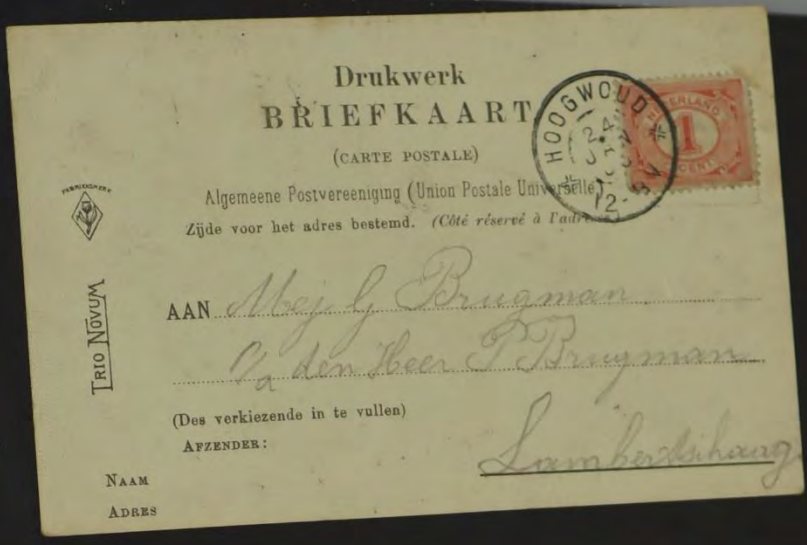 Drukwerk
BRIEFKAART
(CARTE POSTALE)
Algemeene Postvereeniging (Union Postale Universelle)
Zijde voor het adres bestemd. (Côté réservé à l'adre
HOOGWOUD
NEDERLAND
1
CENT
FABRIEKSMERK
TRIO NOVUM
AAN Mej G Brugman
c/a den Heer P Brugman
Lambertschaag
(Des verkiezende in te vullen)
AFZENDER:
NAAM
ADRES